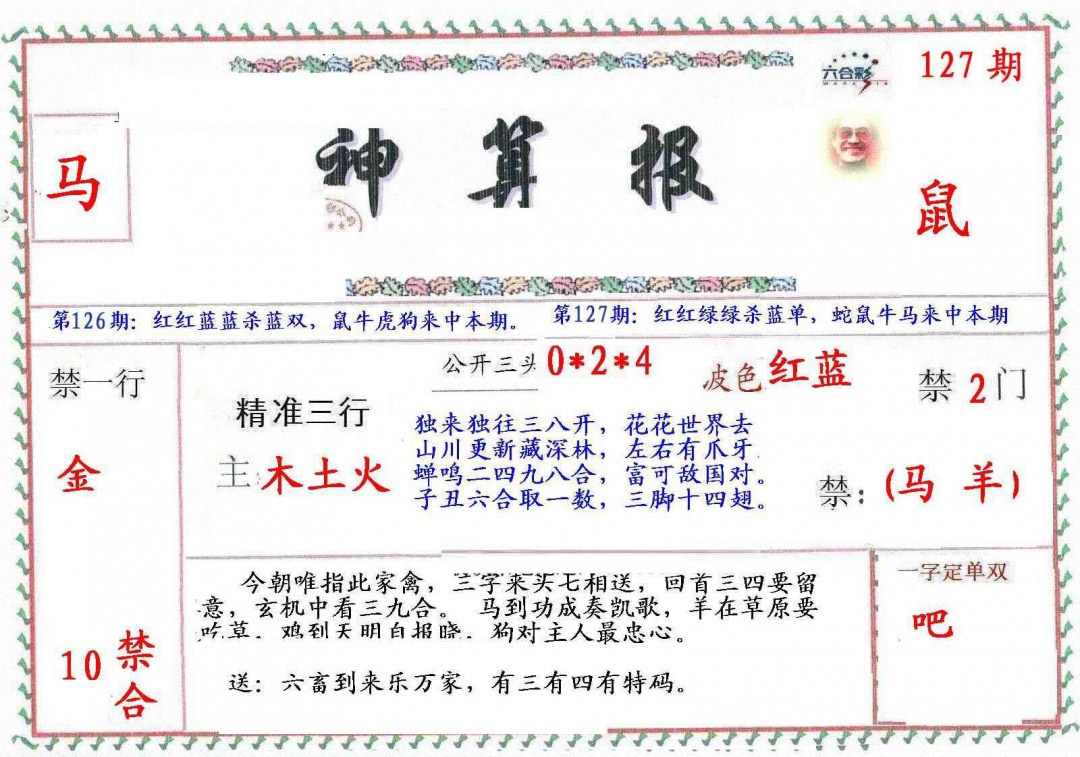 六合彩
127 期
马
神算报
鼠
第126期：红红蓝蓝杀蓝双，鼠牛虎狗来中本期。
第127期：红红绿绿杀蓝单，蛇鼠牛马来中本期
禁一行
金
10 禁合
公开三头 0*2*4
波色 红蓝
精准三行
主：木土火
独来独往三八开，花花世界去
山川更新藏深林，左右有爪牙
蝉鸣二四九八合，富可敌国对。
子丑六合取一数，三脚十四翅。
禁 2 门
禁：(马 羊)
今朝唯指此家禽，三字来头七相送，回首三四要留
意，玄机中看三九合。 马到功成奏凯歌，羊在草原要
吃草，鸡到天明自报晓，狗对主人最忠心。
送：六畜到来乐万家，有三有四有特码。
一字定单双
吧